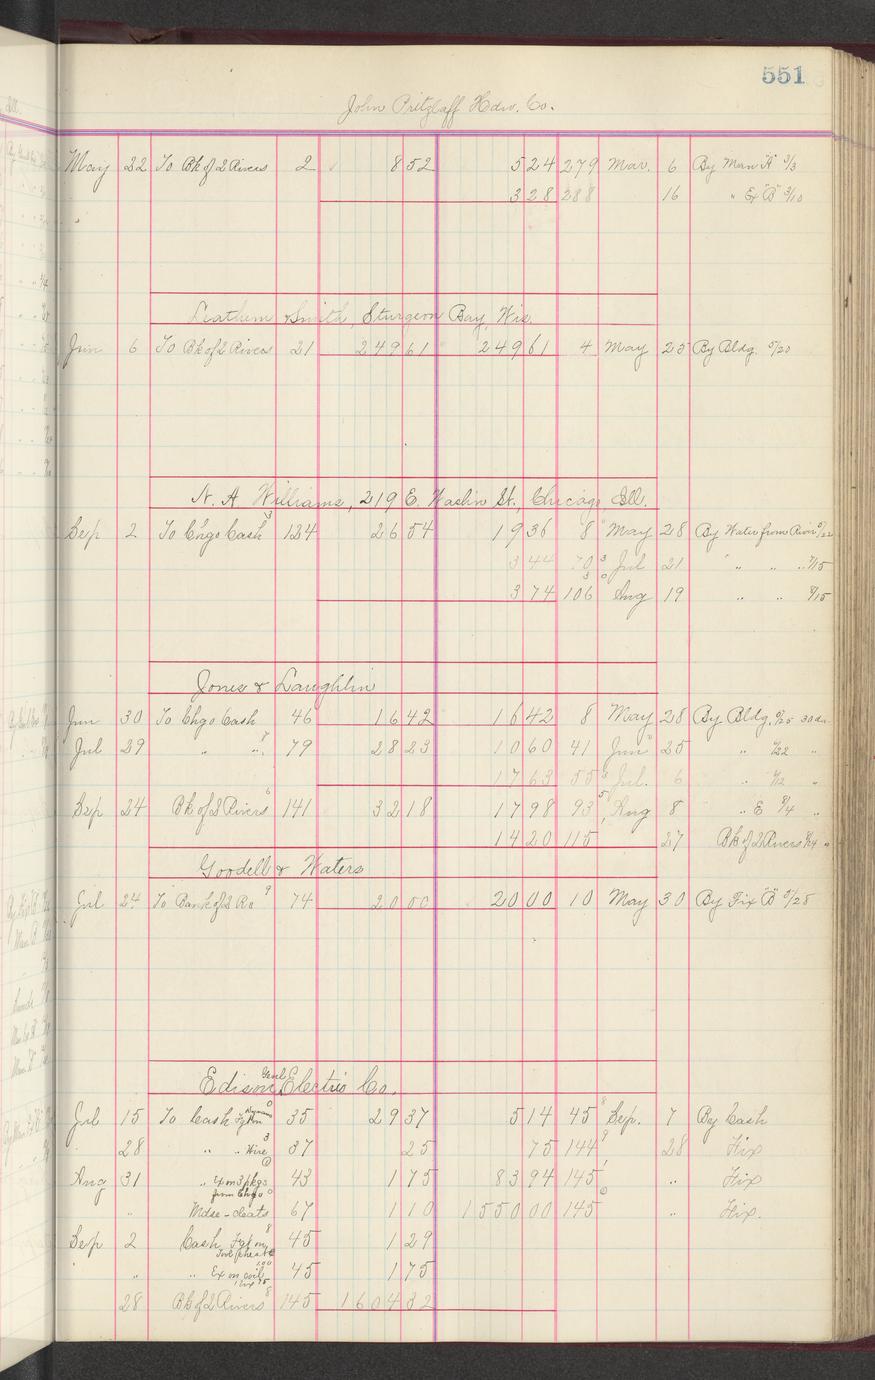 551
John Pritzlaff Hdw. Co.
May 22 To Bk of 2 Rivers 2 8 52 5 24 279 Mar. 6 By Man "A" 3/3
3 28 288 16 " Ex "B" 3/10
Leathem & Smith, Sturgeon Bay, Wis.
Jun 6 To Bk of 2 Rivers 21 249 61 249 61 4 May 25 By Bldg. 5/20
N. A. Williams, 219 E. Washn St., Chicago, Ill.
Sep 2 To Chgo Cash 3 124 26 54 19 36 8 May 28 By Water from River
3 44 70 3 Jul 21 " " " 7/15
3 74 106 Aug 19 " " 8/15
Jones & Laughlin
Jun 30 To Chgo Cash 46 16 42 16 42 8 May 28 By Bldg. 5/25 30 da
Jul 29 " " 79 28 23 10 60 41 Jun 25 " "
17 63 55 Jul. 6 " "
Sep 24 Bk of 2 Rivers 6 141 32 18 17 98 93 5 Aug 8 " E 8/4 "
14 20 115 27 Bk of 2 Rivers 8/24 "
Goodell & Waters
Jul 24 To Bank of 2 Rs 9 74 20 00 20 00 10 May 30 By Fix "B" 5/28
Edison Genl Electric Co.
Jul 15 To Cash 35 29 37 5 14 45 8 Sep. 7 By Cash
28 " " Wire 3 37 25 75 144 9 28 Fix
Aug 31 " Ex on 3 pkgs from Chgo 43 1 75 83 94 145 " Fix
" Mdse - cleats 67 1 10 1550 00 145 " Fix.
Sep 2 Cash Fgt on 8 45 1 29
" " Ex on coil 45 1 75
28 Bk of 2 Rivers 8 145 1604 32